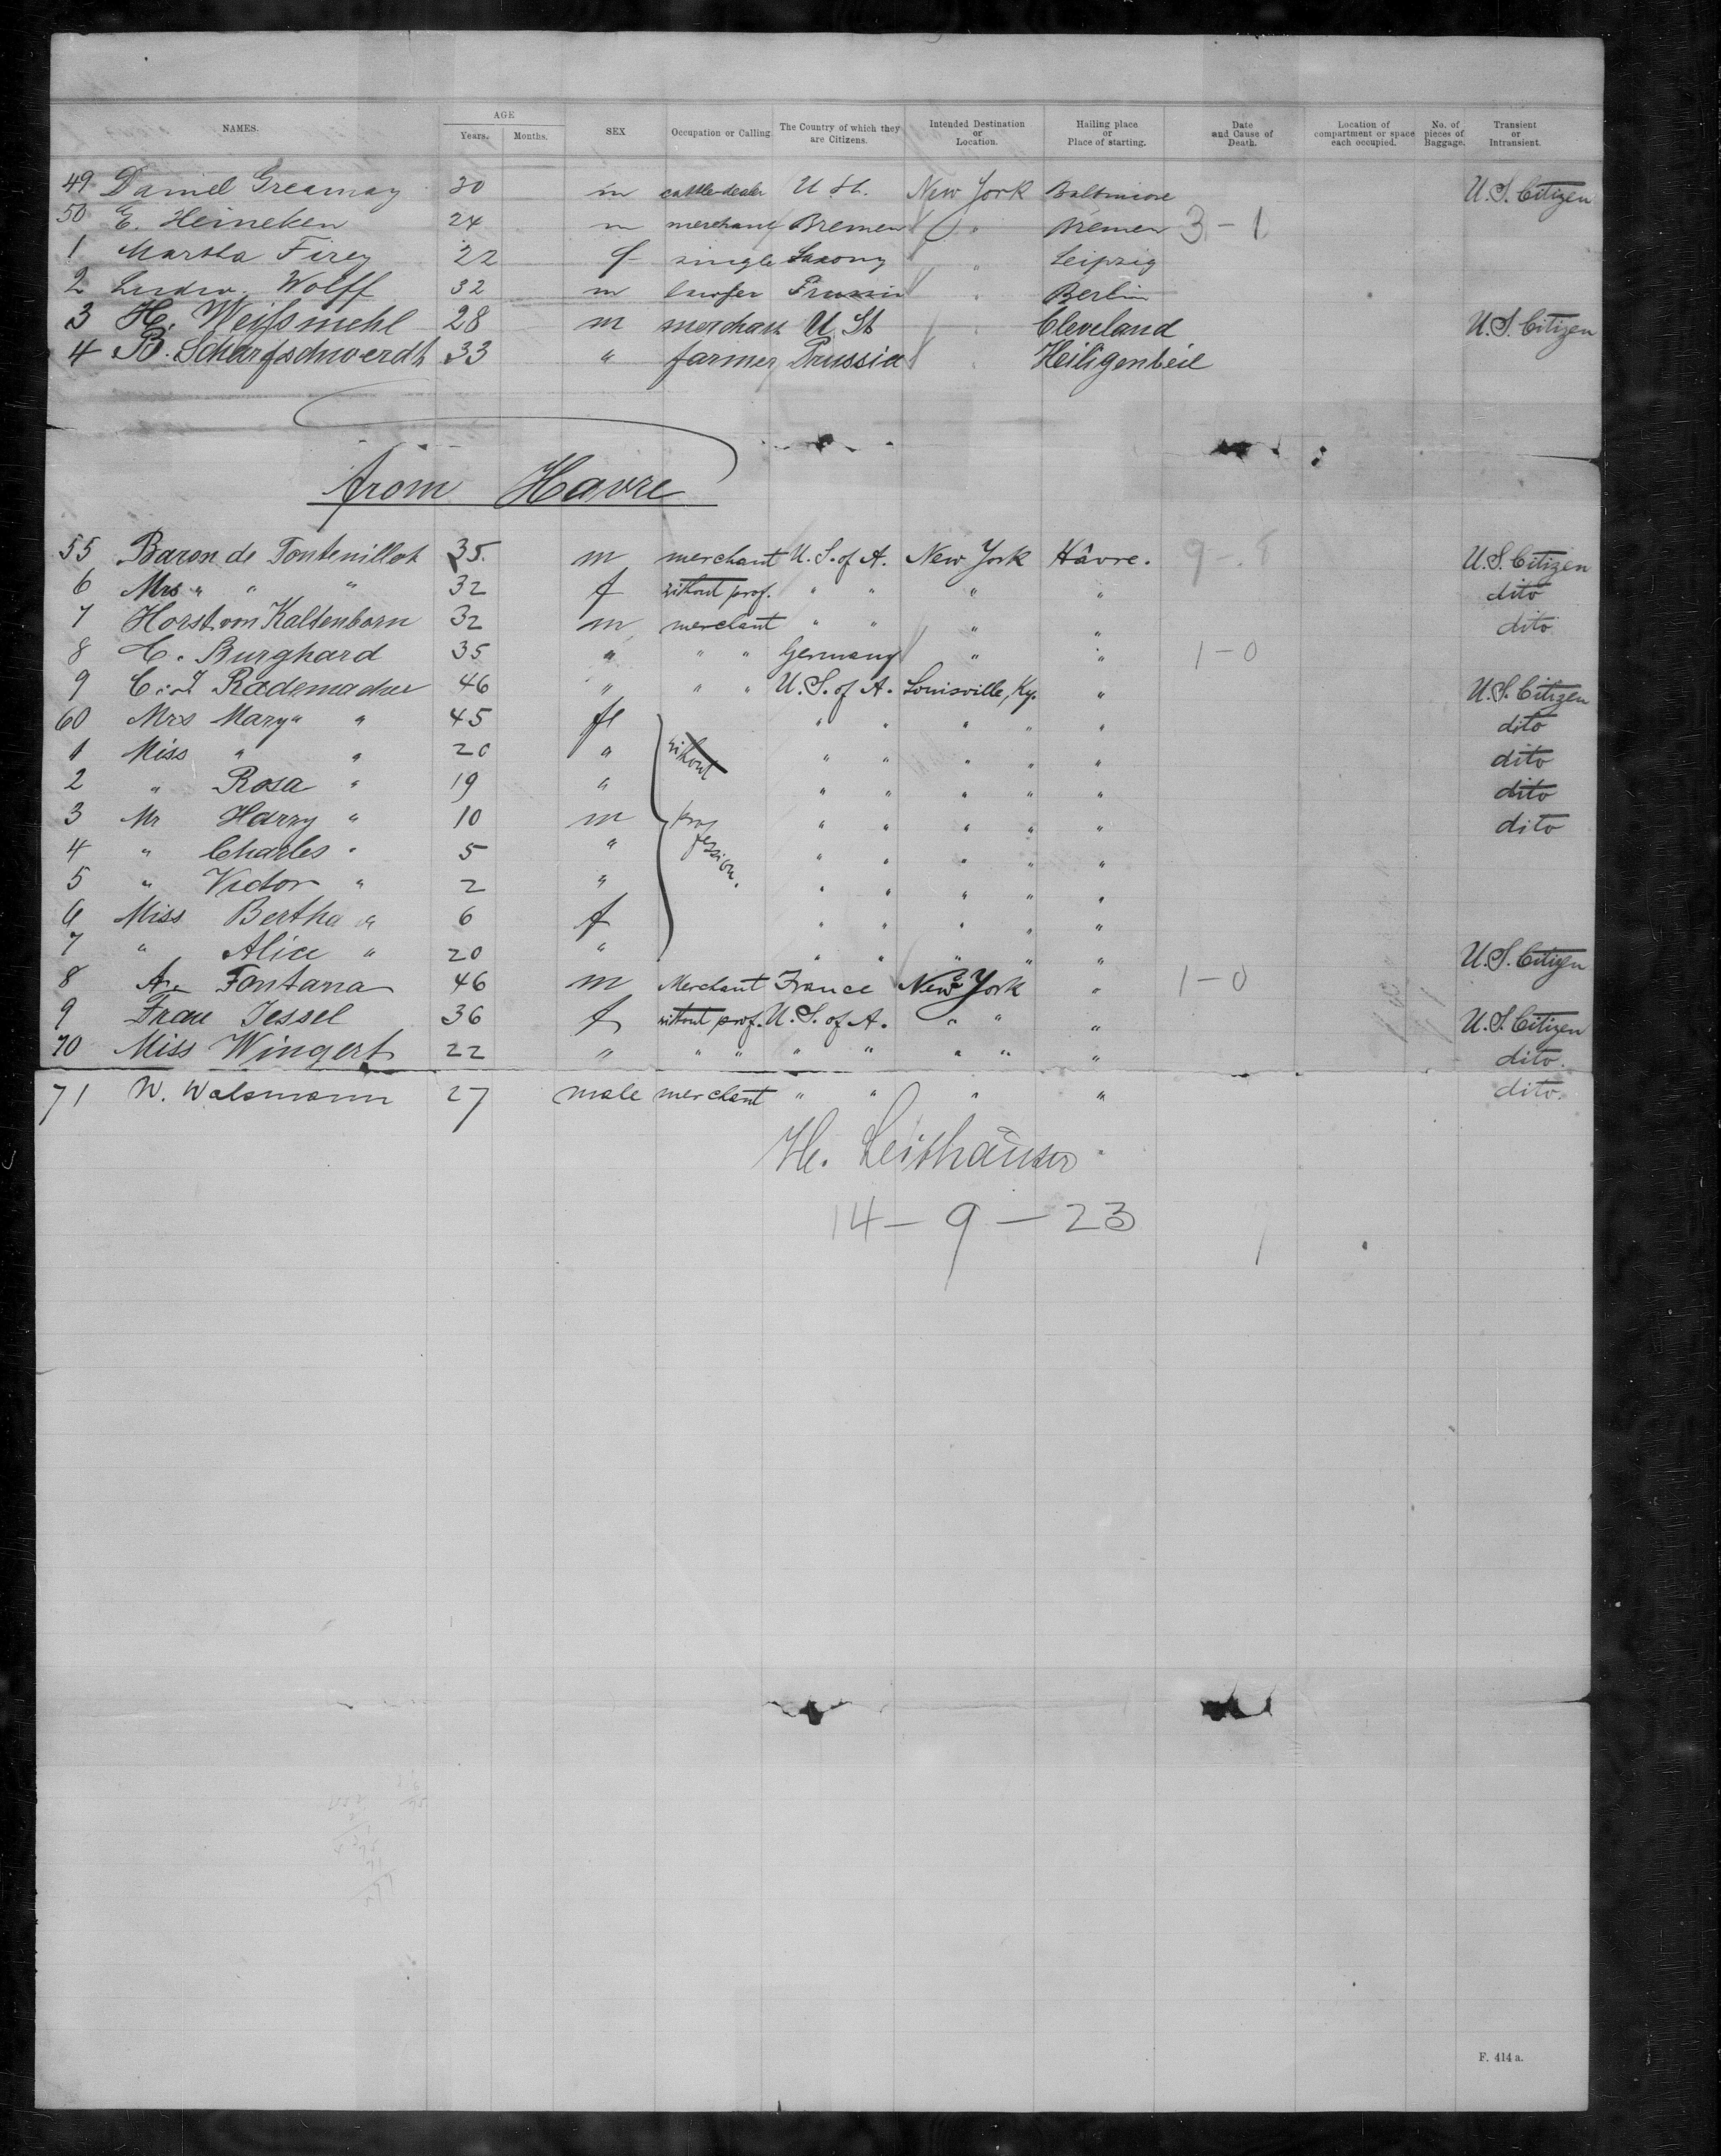 NAMES. AGE Years. Months. SEX Occupation or Calling. The Country of which they are Citizens. Intended Destination or Location. Hailing place or Place of starting. Date and Cause of Death. Location of compartment or space each occupied. No. of pieces of Baggage. Transient or Intransient.
49 Daniel Greamay 30 m cattle-dealer U St. New York Baltimore U.S. Citizen
50 E. Heineken 24 m merchant Bremen " Bremen 3-1
1 Martha Firey 22 f single Saxony " Leipzig
2 Wolff 32 m Prussia " Berlin
3 H. Weißmehl 28 m merchant U St " Cleveland U.S. Citizen
4 B. Scharfschwerdt 33 " farmer Prussia " Heiligenbeil
from Havre
55 Baron de Fontenillot 35. m merchant U.S. of A. New York Hâvre. 9-8 U.S. Citizen
6 Mrs " " " 32 f without prof. " " " " dito
7 Horst von Kaltenborn 32 m merchant " " " " dito
8 C. Burghard 35 " " " Germany " " 1-0
9 C. J. Rademacher 46 " " " U.S. of A. Louisville, Ky. " U.S. Citizen
60 Mrs Mary " " 45 f without profession. " " " " " dito
1 Miss " " 20 " " " " " " dito
2 " Rosa " 19 " " " " " " dito
3 Mr Harry " 10 m " " " " " dito
4 " Charles " 5 " " " " " "
5 " Victor " 2 " " " " " "
6 Miss Bertha " 6 f " " " " "
7 " Alice " 20 " " " " " " U.S. Citizen
8 Fontana 46 m Merchant France New York " 1-0
9 Frau Jessel 36 f without prof. U.S. of A. " " " U.S. Citizen
70 Miss Wingert 22 " " " " " " " " dito.
71 W. Walsmann 27 male merchant " " " " dito.
H. Leithäuser
14-9-23
F. 414 a.